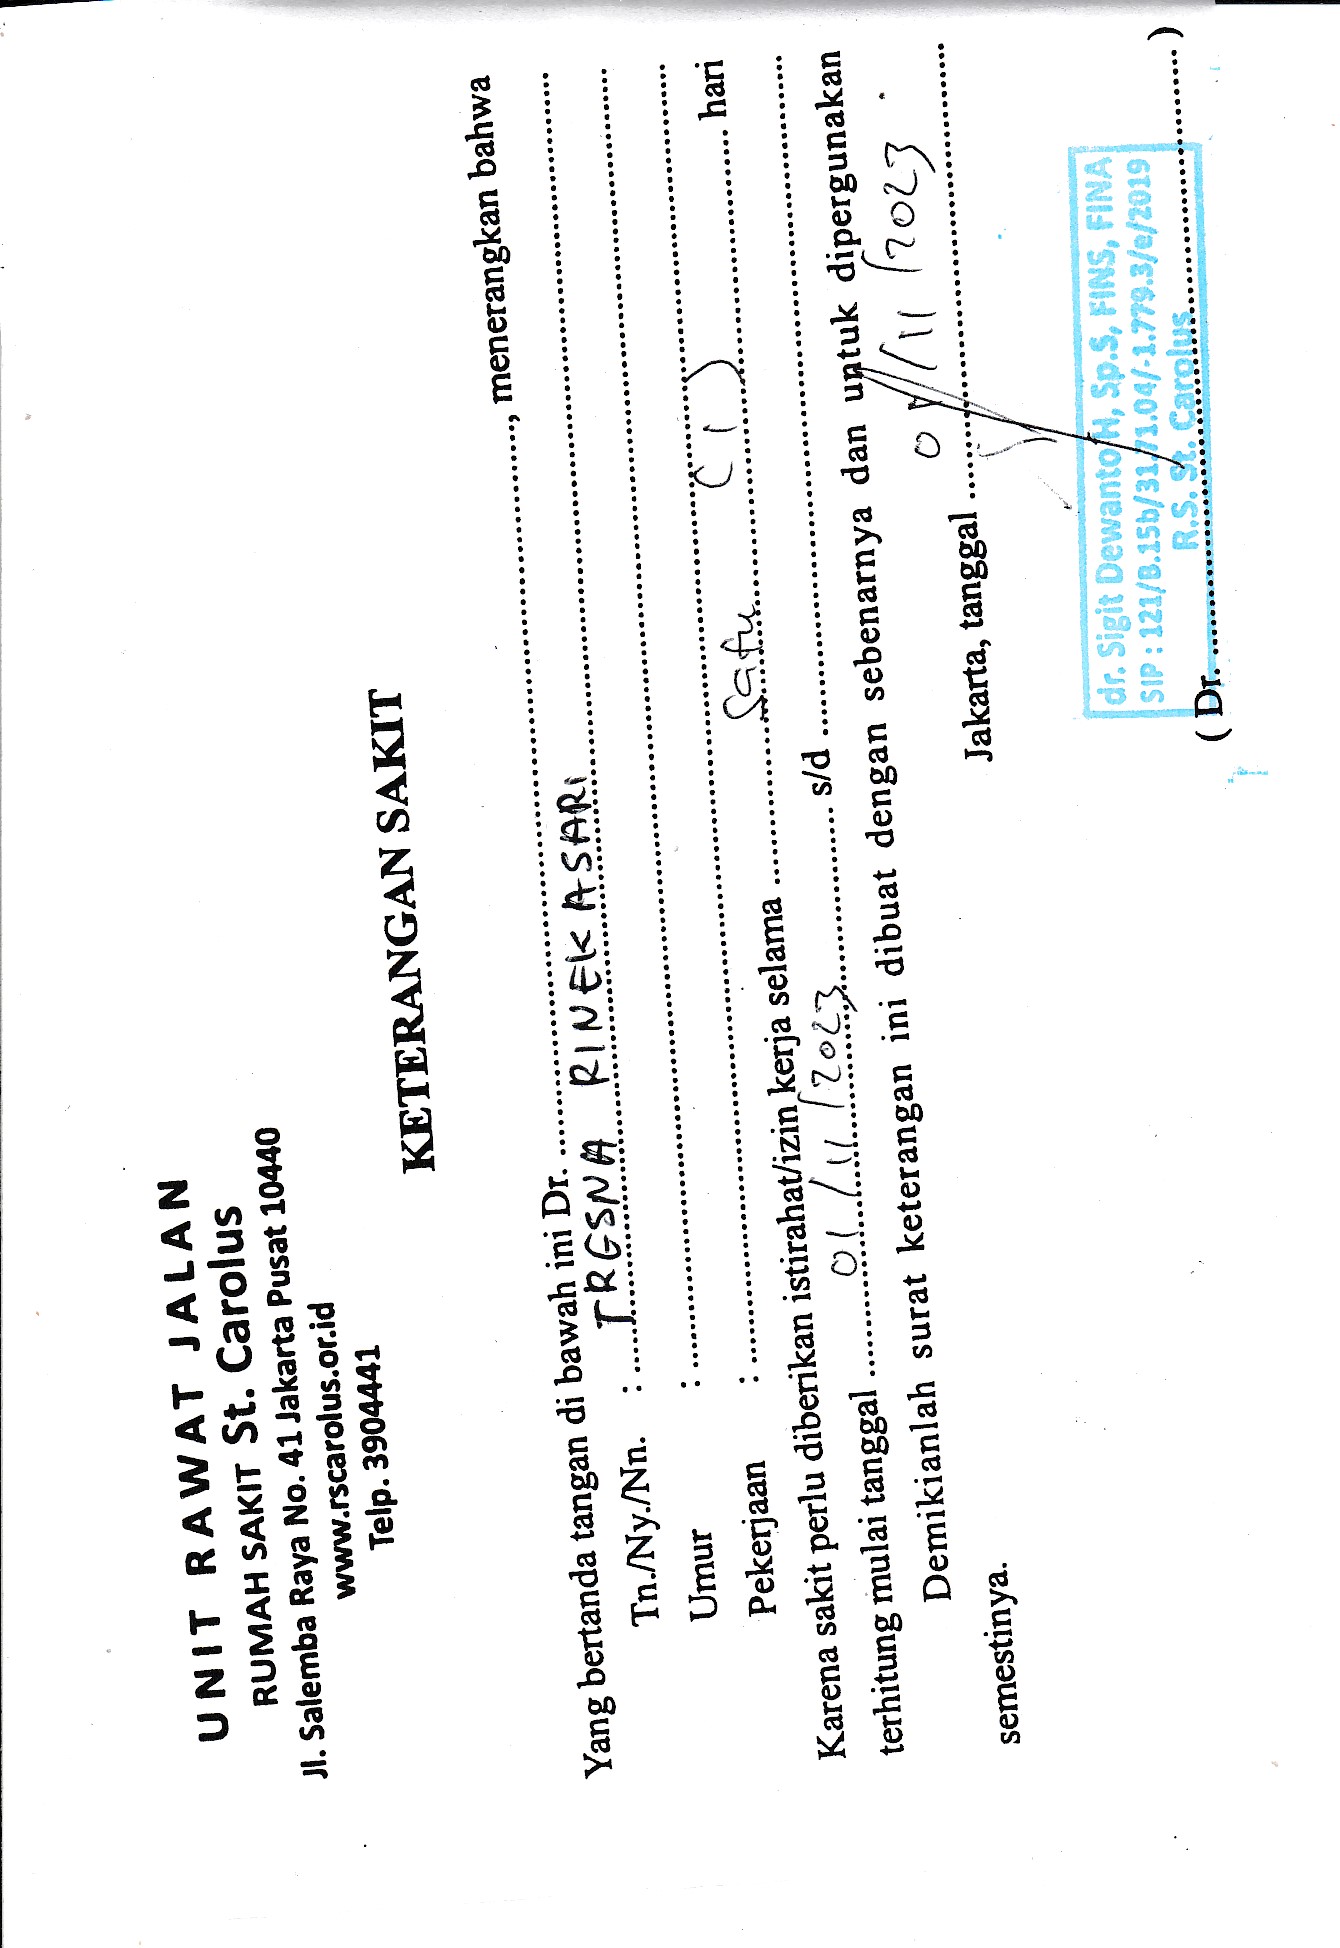 UNIT RAWAT JALAN
RUMAH SAKIT St. Carolus
Jl. Salemba Raya No. 41 Jakarta Pusat 10440
www.rscarolus.or.id
Telp. 3904441
KETERANGAN SAKIT
Yang bertanda tangan di bawah ini Dr. ...................., menerangkan bahwa
Tn./Ny./Nn. : TRGSNA RINEKASARI
Umur : ....................
Pekerjaan : ....................
Karena sakit perlu diberikan istirahat/izin kerja selama Satu (1) hari
terhitung mulai tanggal 01/11/2023 s/d ....................
Demikianlah surat keterangan ini dibuat dengan sebenarnya dan untuk dipergunakan
semestinya.
Jakarta, tanggal 01/11/2023
dr. Sigit Dewanto H, Sp.S, FINS, FINA
SIP : 121/B.15b/31.71.04/-1.779.3/e/2019
R.S. St. Carolus
( Dr. .................... )